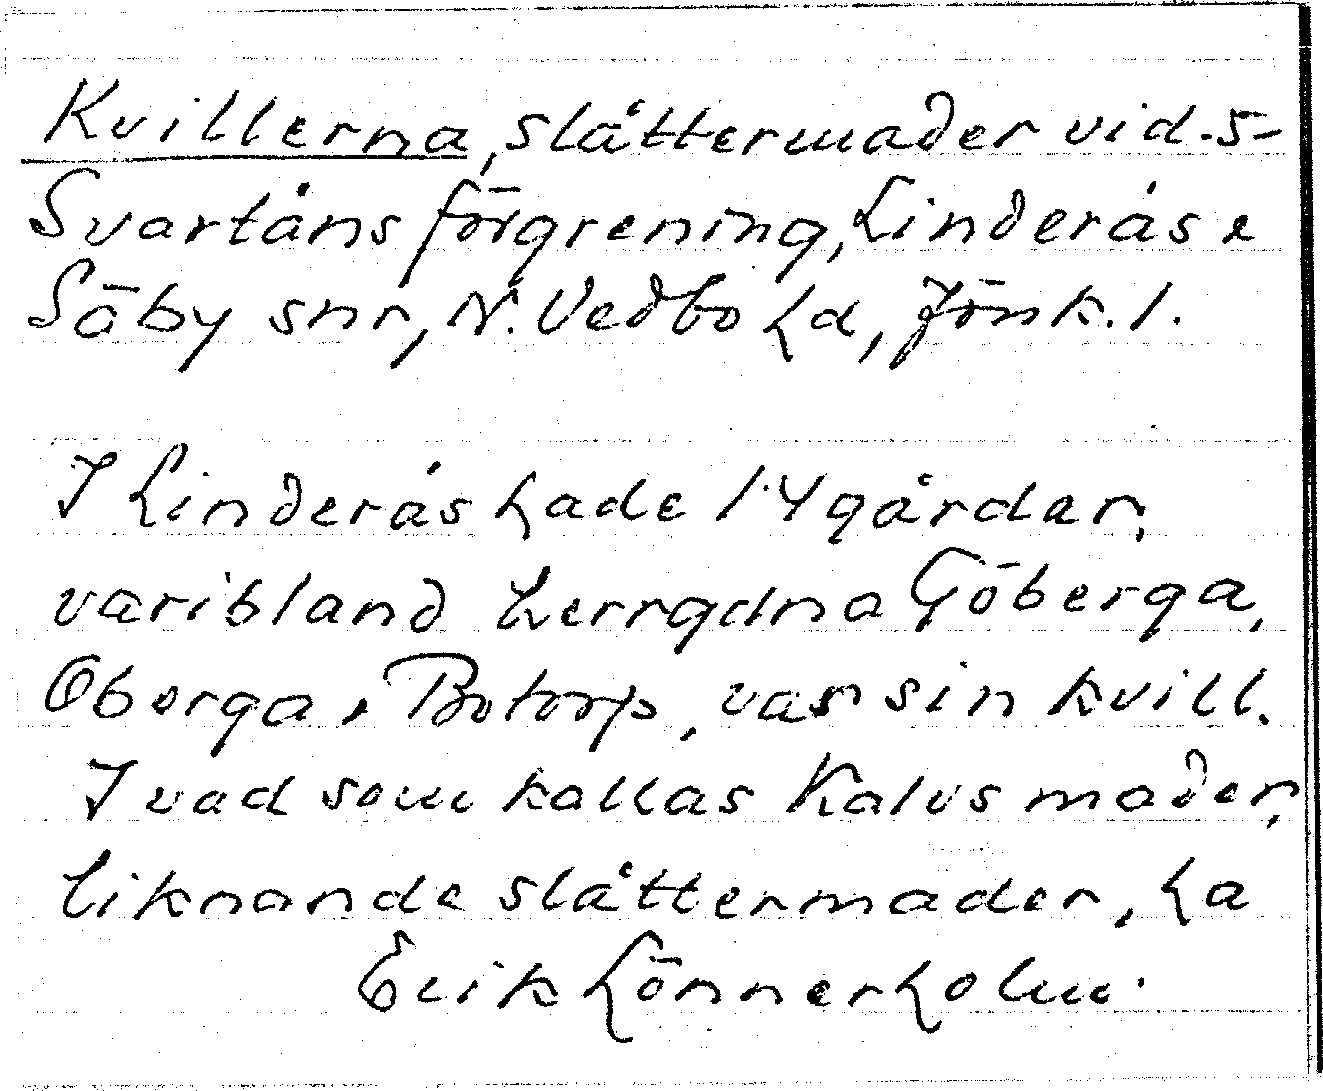 Kvillerna, slåttermader vid
Svartåns förgrening, Linderås e
Säby snr, N. Vedbo hd, Jönk. l.
I Linderås hade 14 gårdar,
varibland herrgdna Göberga,
Oberga, Botorp, var sin kvill.
I vad som kallas Kalvs mader,
liknande slåttermader, ha
Erik Lönnerholm.